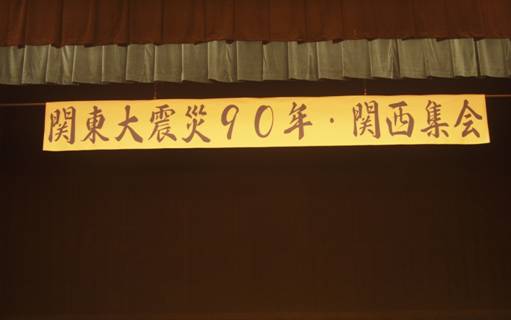 関東大震災90年・関西集会